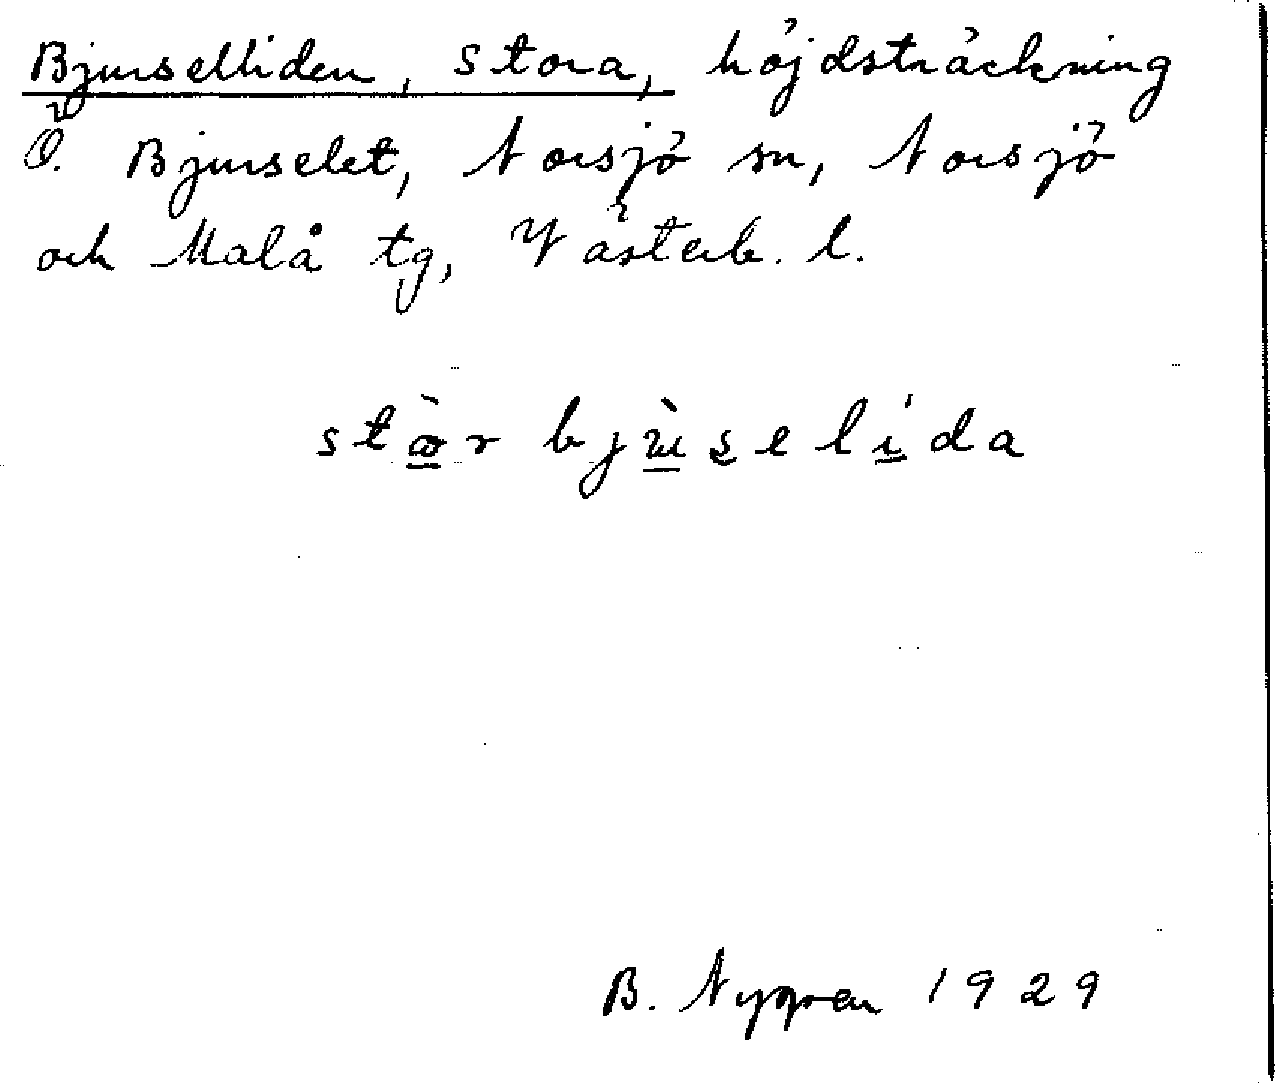 Bjurselliden, stora, höjdsträckning
Ö. Bjurselet, Norsjö sn, Norsjö
och Malå tg, Västerb. l.
stœ̀r bjɯ̀ʂelída
B. Nygren 1929